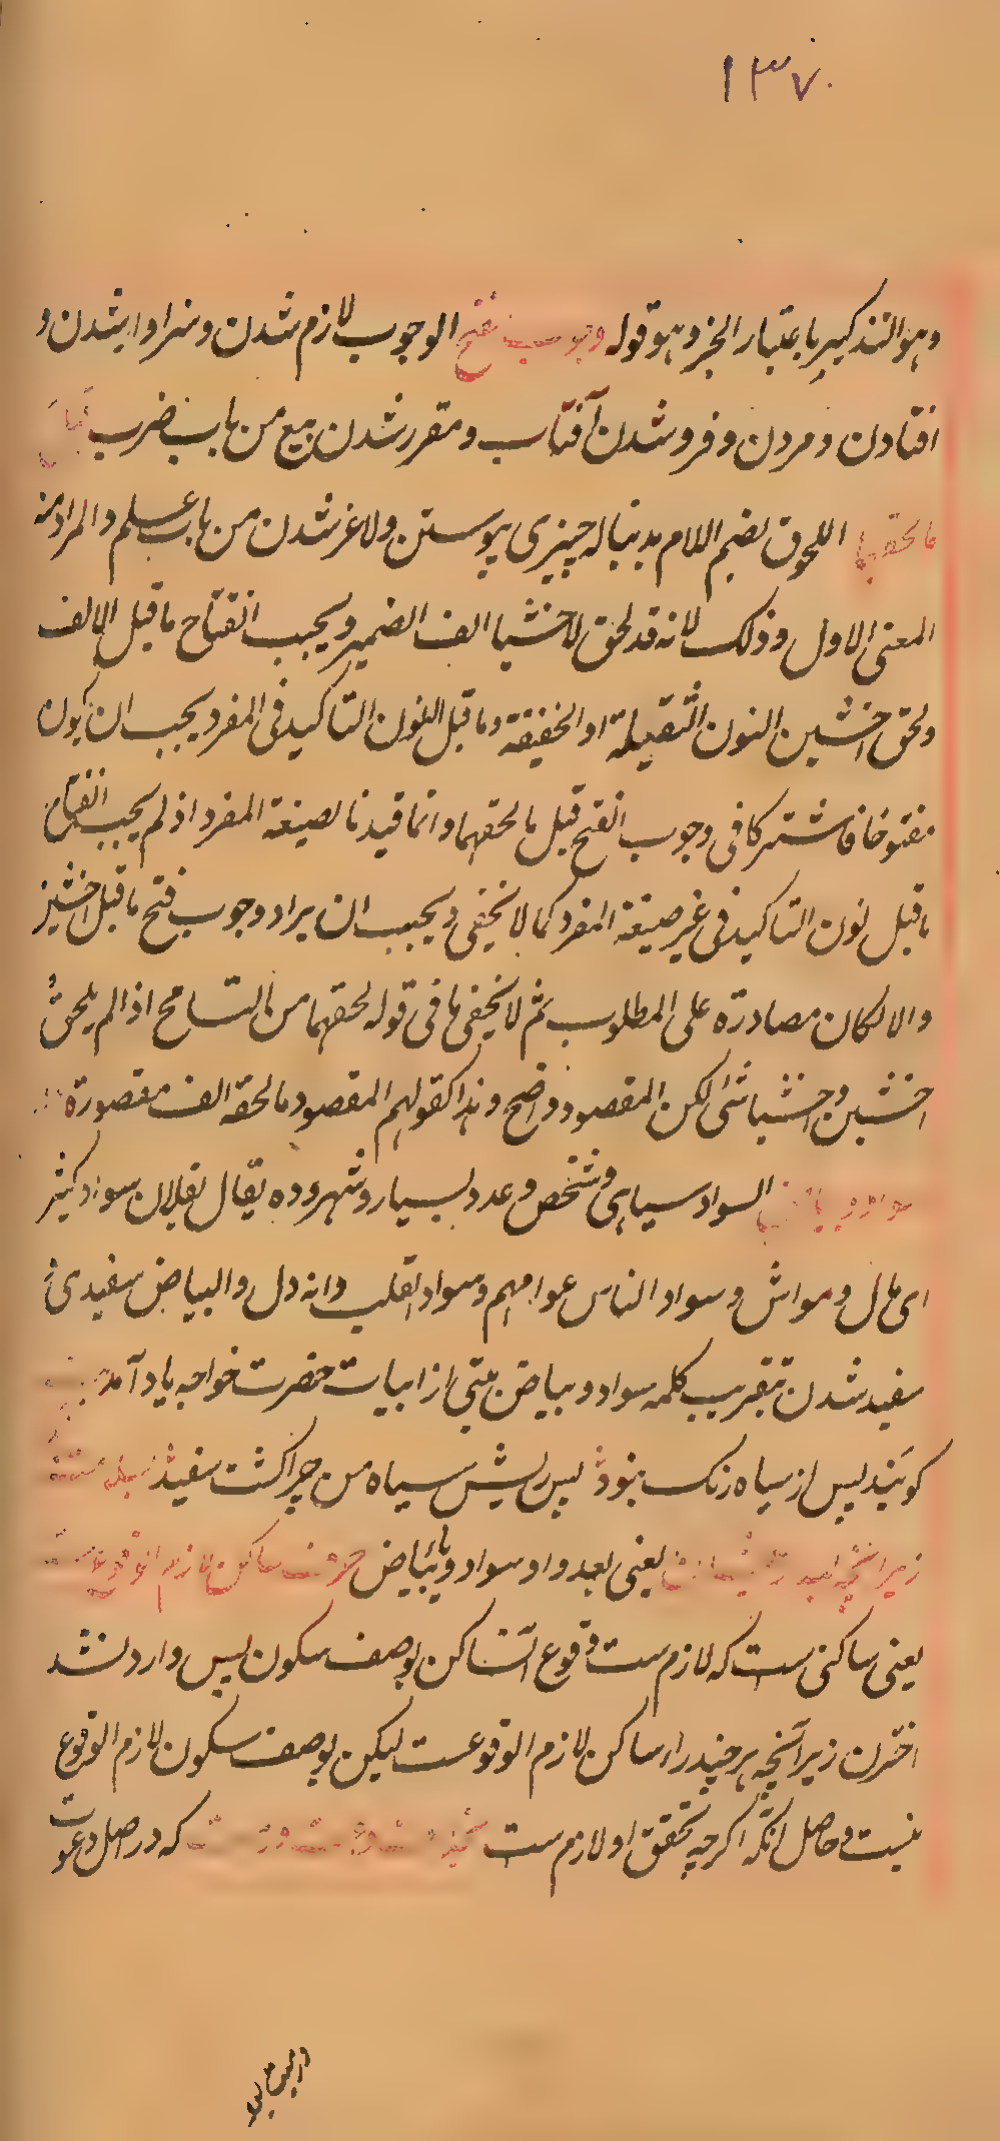 ١٣٧٠
وهو التذکیر باعتبار الخبر وهو قوله وجوب فتح الوجوب لازم شدن وسزاوار شدن و
افتادن ومردن وفرو شدن آفتاب ومقرر شدن بیع من باب ضرب
ما لحقهما اللحوق بضم اللام بدنباله چیزی پیوستن ولاغر شدن من باب علم والمراد منه
المعنی الاول وذلک لانه قد لحق لاخشیا الف الضمیر ویجب انفتاح ما قبل الالف
ولحق اخشین النون الثقیلة او الخفیفة وما قبل النون التاکید فی المفرد یجب ان یکون
مفتوحا فاشترکا فی وجوب الفتح قبل ما لحقهما وانما قیدنا بصیغة المفرد اذ لم یجب انفتاح
ما قبل نون التاکید فی غیر صیغة المفرد کما لا یخفی ویجب ان یراد وجوب فتح ما قبل اخشین
والا لکان مصادرة علی المطلوب ثم لا یخفی ما فی قوله لحقهما من التسامح اذ لم یلحق
اخشین واخشیا شئ لکن المقصود واضح وهذا کقولهم المقصور ما لحقه الف مقصورة
السواد سیاهی وشخص وعدد بسیار وشهر وده یقال لفلان سواد کثیر
ای مال ومواش وسواد الناس عوامهم وسواد القلب دانه دل والبیاض سفیدی
سفید شدن بتقریب کلمه سواد وبیاض بیتی از ابیات حضرت خواجه یاد آمد
کویند پس از سیاه رنک نبود پس ریش سیاه من چرا کشت سفید
زیرا نچه بعد یعنی بعد واو سواد ویاء بیاض حرف ساکن لازم الوقوعست
یعنی ساکنی ست که لازم ست وقوع آن ساکن بوصف سکون پس وارد نشد
اخترن زیرا نچه هر چند راء ساکن لازم الوقوعست لیکن بوصف سکون لازم الوقوع
نیست وحاصل آنکه اکرچه تحقق او لازم ست که در اصل دعوت